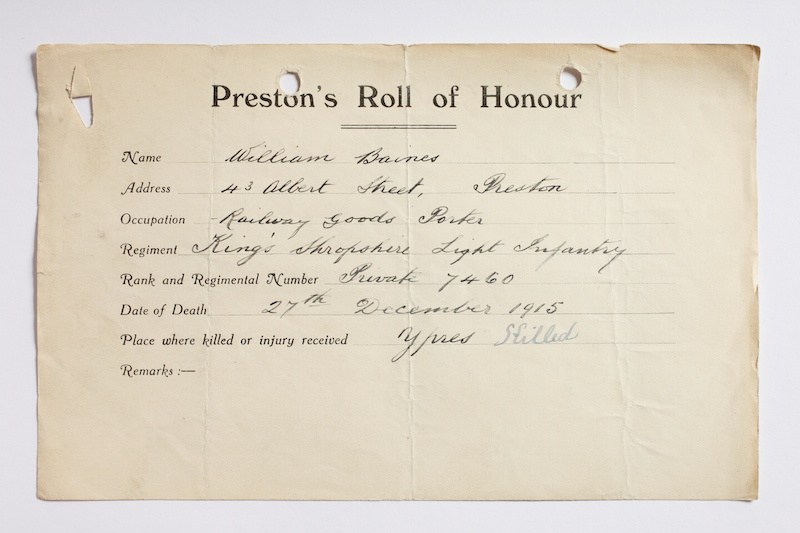 Preston's Roll of Honour
Name William Baines
Address 43 Albert Street, Preston
Occupation Railway Goods Porter
Regiment King's Shropshire Light Infantry
Rank and Regimental Number Private 7460
Date of Death 27th December 1915
Place where killed or injury received Ypres Killed
Remarks :—